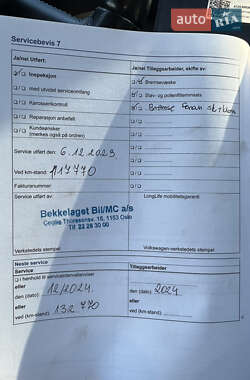 auto.RIA
Servicebevis 7
Ja/nei Utført:
Ja/nei Tilleggsarbeider, skifte av:
Inspeksjon
Bremsevæske
med utvidet serviceomfang
Støv- og pollenfilterinnsats
Karosserikontroll
Reparasjon anbefalt
Kundeønsker
(merkes også på ordren)
Service utført den: 6.12.2023
Ved km-stand: 117770
Fakturanummer:
Service utført av:
LongLife mobilitetsgaranti:
Bekkelaget Bil/MC a/s
Cecilie Thoresensv. 15, 1153 Oslo
Tlf. 22 28 30 00
Verkstedets stempel
Volkswagen-verkstedets stempel
Neste service
Service
Tilleggsarbeider
i henhold til serviceintervallviser
eller
den (dato) 12/2024
den (dato): 2024
eller
eller
ved (km-stand) 132 770
ved (km-stand):